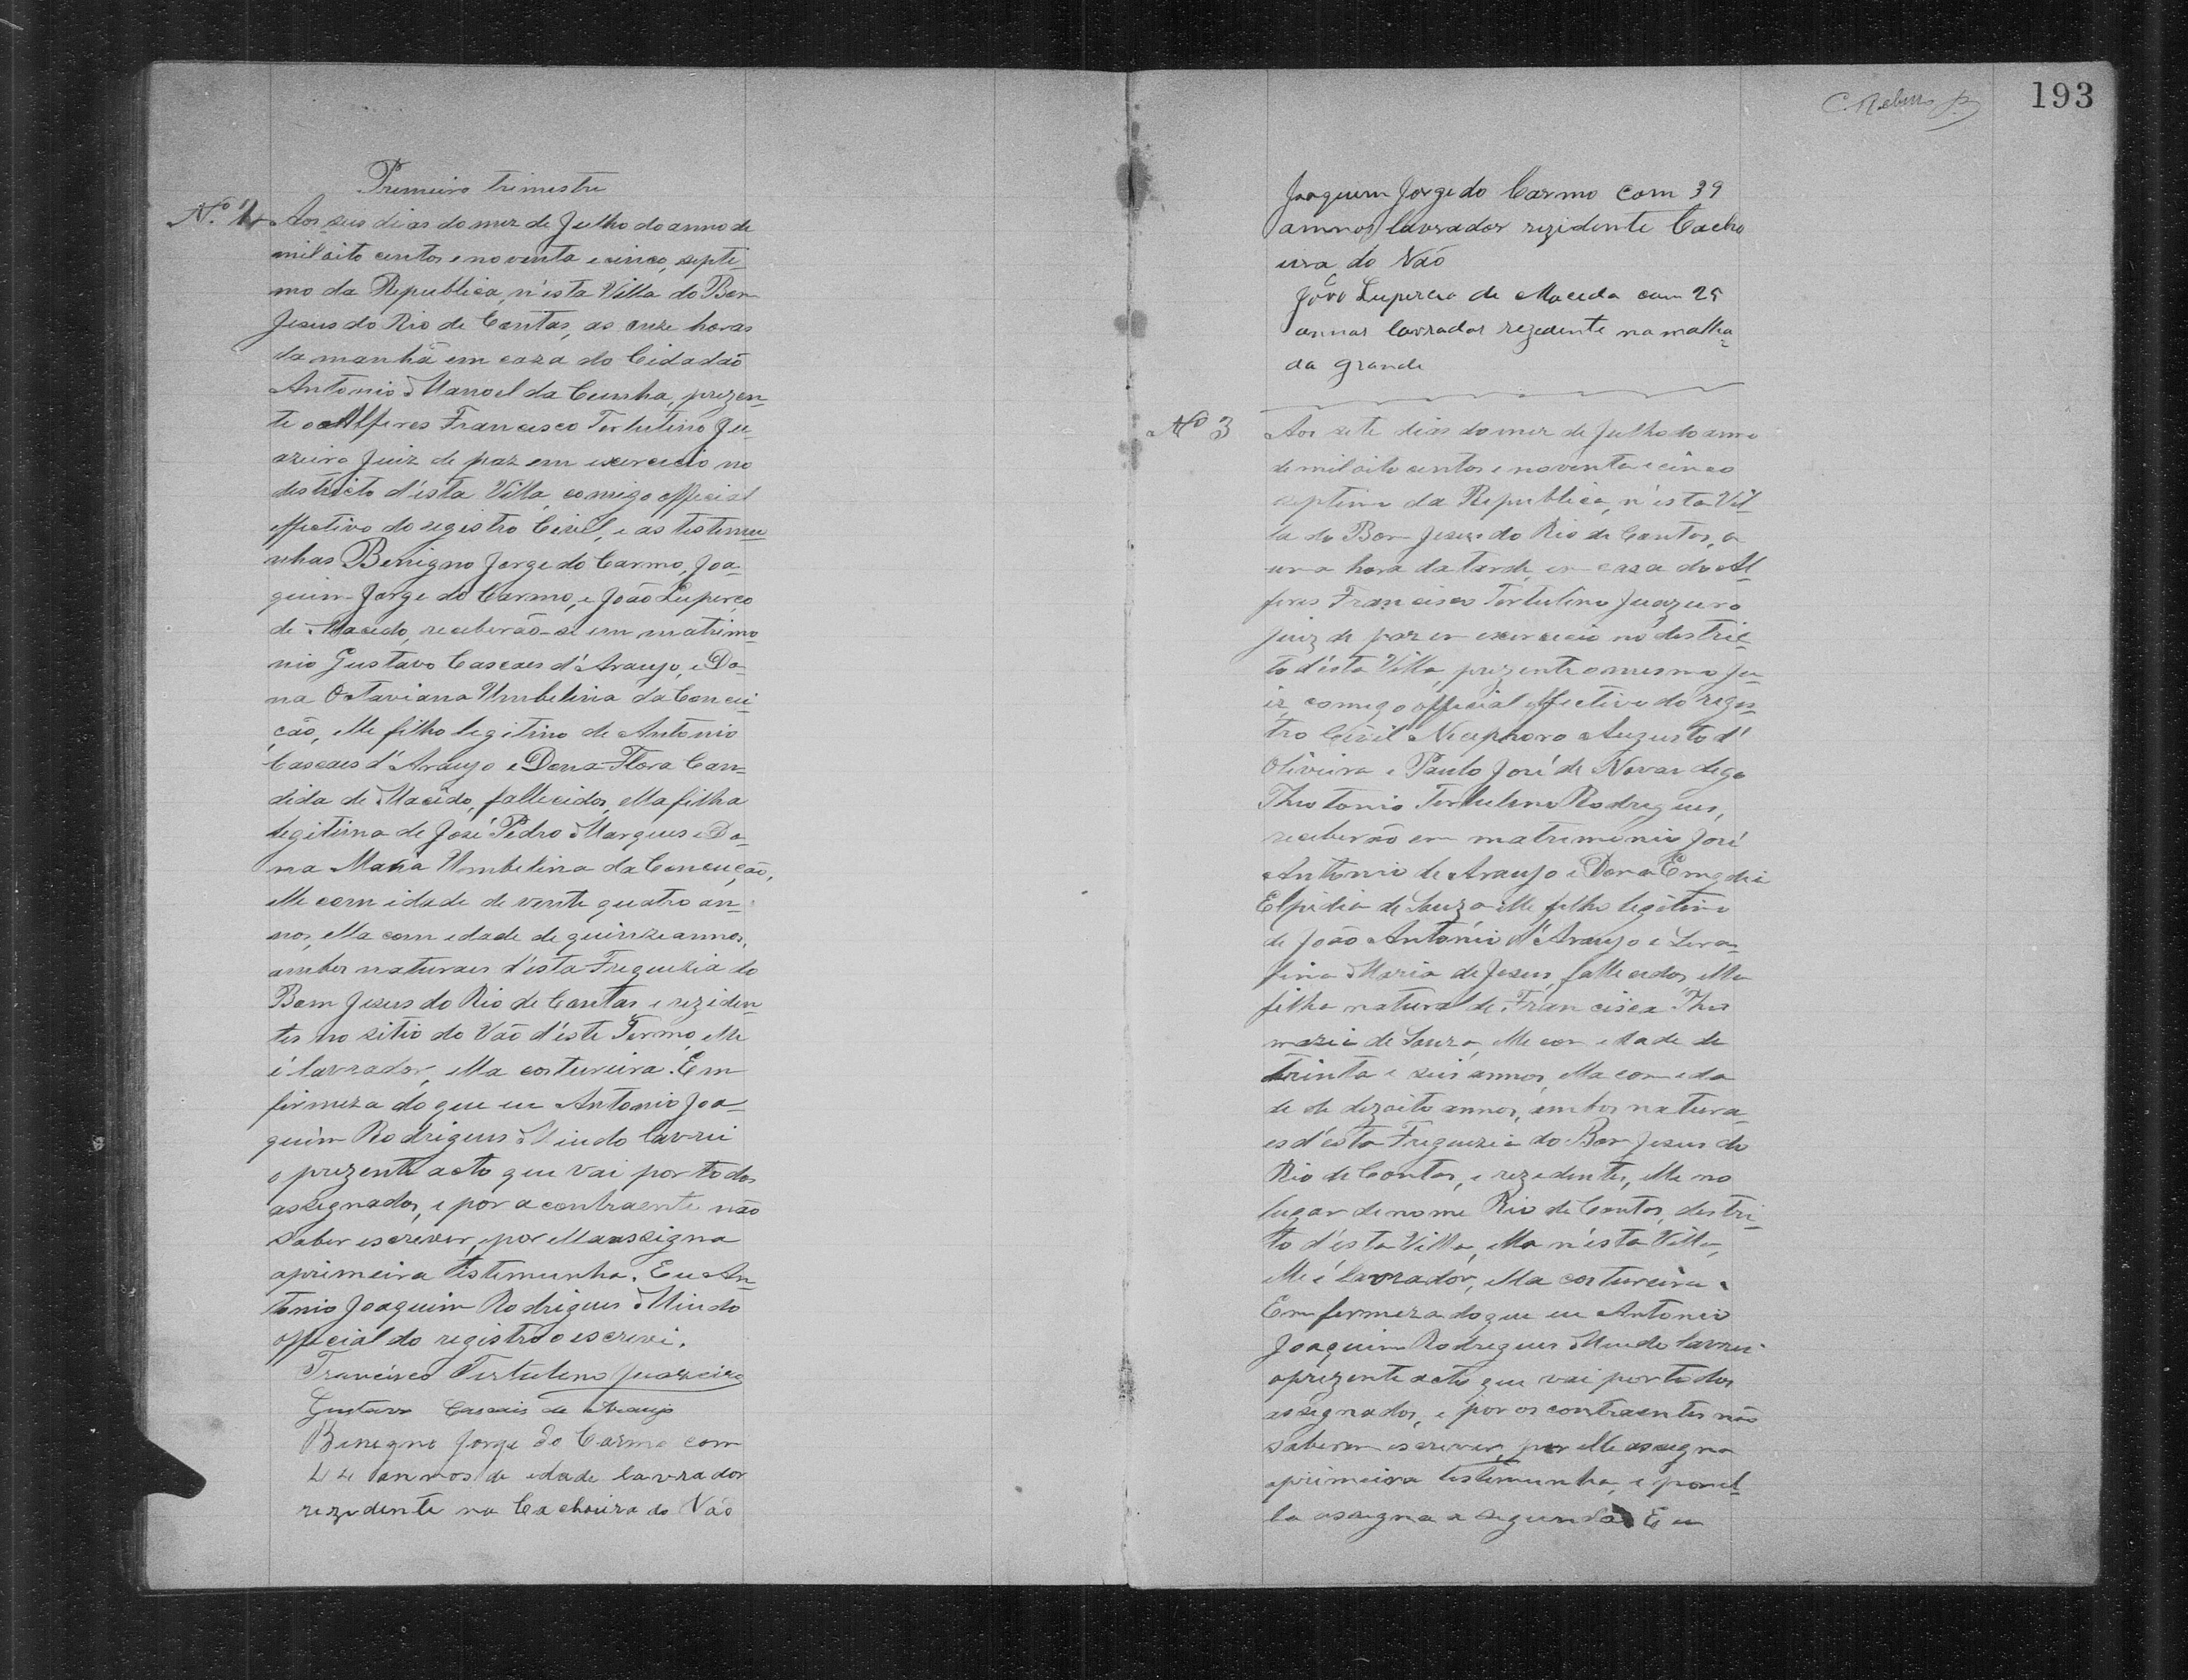 Primeiro trimestre
Nº 1 Aos seis dias do mez de Julho do anno de
mil oito centos e noventa e cinco, septi-
mo da Republica, n'esta Villa do Bom
Jesus do Rio de Contas, as onze horas
da manhã em caza do Cidadão
Antonio Manoel da Cunha, prezen-
te o Alferes Francisco Tertulino Ju-
azeiro Juiz de paz em exercicio no
destricto d'esta Villa, comigo official
effectivo do registro Civil, e as testemu-
nhas Benigno Jorge do Carmo, Joa-
quim Jorge do Carmo, e João Luperco
de Macedo, receberão-se em matrimo-
nio Gustavo Cascaes d'Araujo, e Do-
na Octaviana Umbelina da Concei-
ção, elle filho legitimo de Antonio
Cascaes d'Araujo e Dona Flora Can-
dida de Macedo, fallecidos, ella filha
legitima de José Pedro Marques e Do-
na Maria Umbelina da Conceição,
elle com idade de vente quatro an-
nos, ella com edade de quinze annos,
ambos naturaes d'esta Freguezia do
Bom Jesus do Rio de Contas e reziden-
tes no sitio do Vão d'este Termo, elle
é lavrador, ella costureira. Em
firmeza do que eu Antonio Joa-
quim Rodrigues Mindo lavrei
o prezente acto que vai por todos
assegnados, e por a contraente não
saber escrever, por ella assigna
a primeira testemunha. Eu An-
tonio Joaquim Rodrigues Mindo
official do registro o escrevi.
Francisco Tertulino Juazeiro
Gustavo Cascais de Araujo
Benegno Jorge do Carmo com
44 annos de edade lavrador
rezidente na Cachoeira do Vão
C. Nabuco Jr
193
Joaquim Jorge do Carmo com 39
annos lavrador rezidente Cacho
eira do Vão
João Lupercio de Maceda com 25
annos lavrador rezedente na malha-
da grande
Nº 3 Aos sete dias do mez de Julho do anno
de mil oito centos e noventa e cinco
septimo da Republica, n'esta Vil-
la do Bom Jesus do Rio de Contas, a
uma hora da tarde, em caza do Al-
feres Francisco Tertulino Juazeiro
juiz de paz em exercicio no destric-
to d'esta Villa, prezente o mesmo Ju-
iz, comigo official effectivo do regis-
tro Civil Nicephoro Augusto d'
Oliveira e Paulo José de Novaes digo
Theotonio Tertulino Rodrigues,
receberão em matrimonio José
Antonio de Araujo e Dona Emgdia
Elpidia de Souza elle filho legitimo
de João Antonio d'Araujo e Sera-
fina Maria de Jesus, fallecidos, ella
filha natural de Francisca Tho
mazia de Souza, elle com edade de
trinta e seis annos, ella com eda
de de dezoito annos, ambos natura-
es d'esta Freguezia do Bom Jesus do
Rio de Contas, e rezedentes, elle no
lugar de nome Rio de Contas, destri-
to d'esta Villa, ella n'esta Villa,
elle é lavrador, ella costureira.
Em fermeza do que eu Antonio
Joaquim Rodrigues Mindo lavrei
o prezente acto que vai por todos
assegnados, e por os contraentes não
saberem escrever, por elle assegna
a primeira testemunha, e por el-
la assegna a segunda. Eu